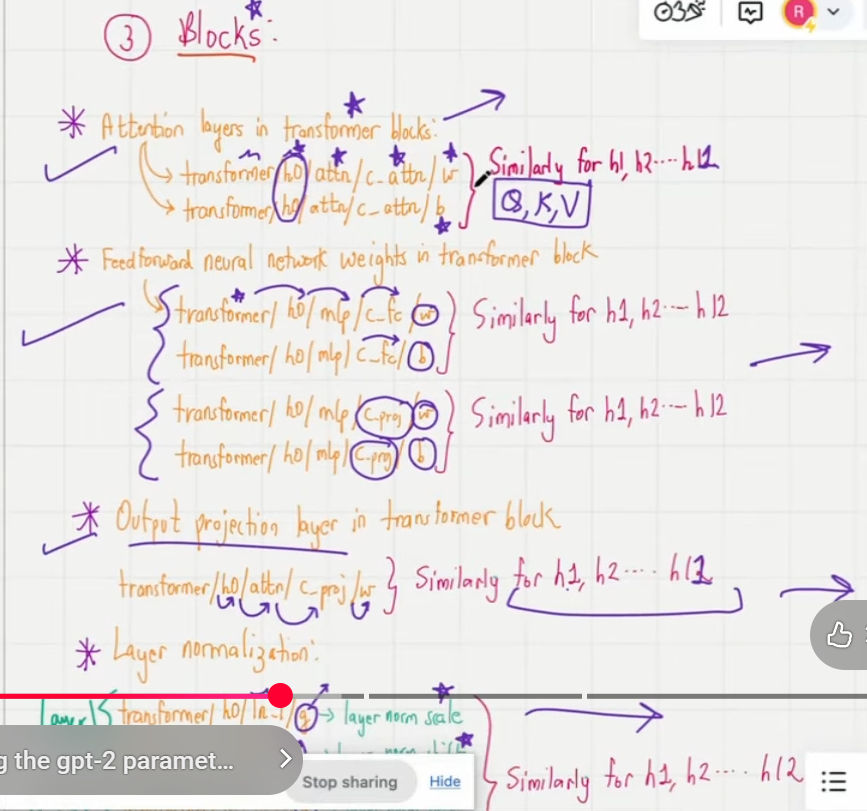 ③ Blocks:
R
* Attention layers in transformer blocks:
→ transformer/h0/attn/c_attn/w
→ transformer/h0/attn/c_attn/b
Similarly for h1, h2.... h11
Q, K, V
* Feedforward neural network weights in transformer block
transformer/h0/mlp/c_fc/w
transformer/h0/mlp/c_fc/b
Similarly for h1, h2.... h12
transformer/h0/mlp/c_proj/w
transformer/h0/mlp/c_proj/b
Similarly for h1, h2.... h12
* Output projection layer in transformer block
transformer/h0/attn/c_proj/w
Similarly for h1, h2....
* Layer normalization:
transformer/h0/ln_1/g → layer norm scale
g the gpt-2 paramet...
Stop sharing Hide
Similarly for h1, h2.... h12